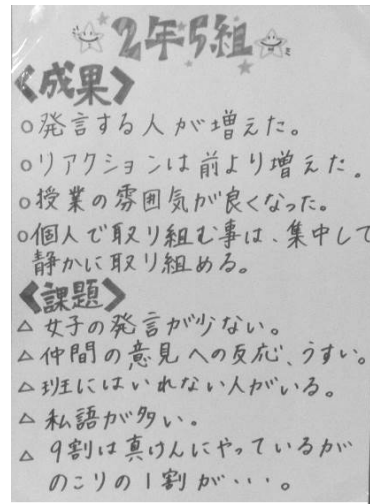 2年5組
<成果>
○発言する人が増えた。
○リアクションは前より増えた。
○授業の雰囲気が良くなった。
○個人で取り組む事は、集中して
静かに取り組める。
<課題>
△女子の発言が少ない。
△仲間の意見への反応、うすい。
△班にはいれない人がいる。
△私語が多い。
△9割は真けんにやっているが
のこりの1割が・・・。